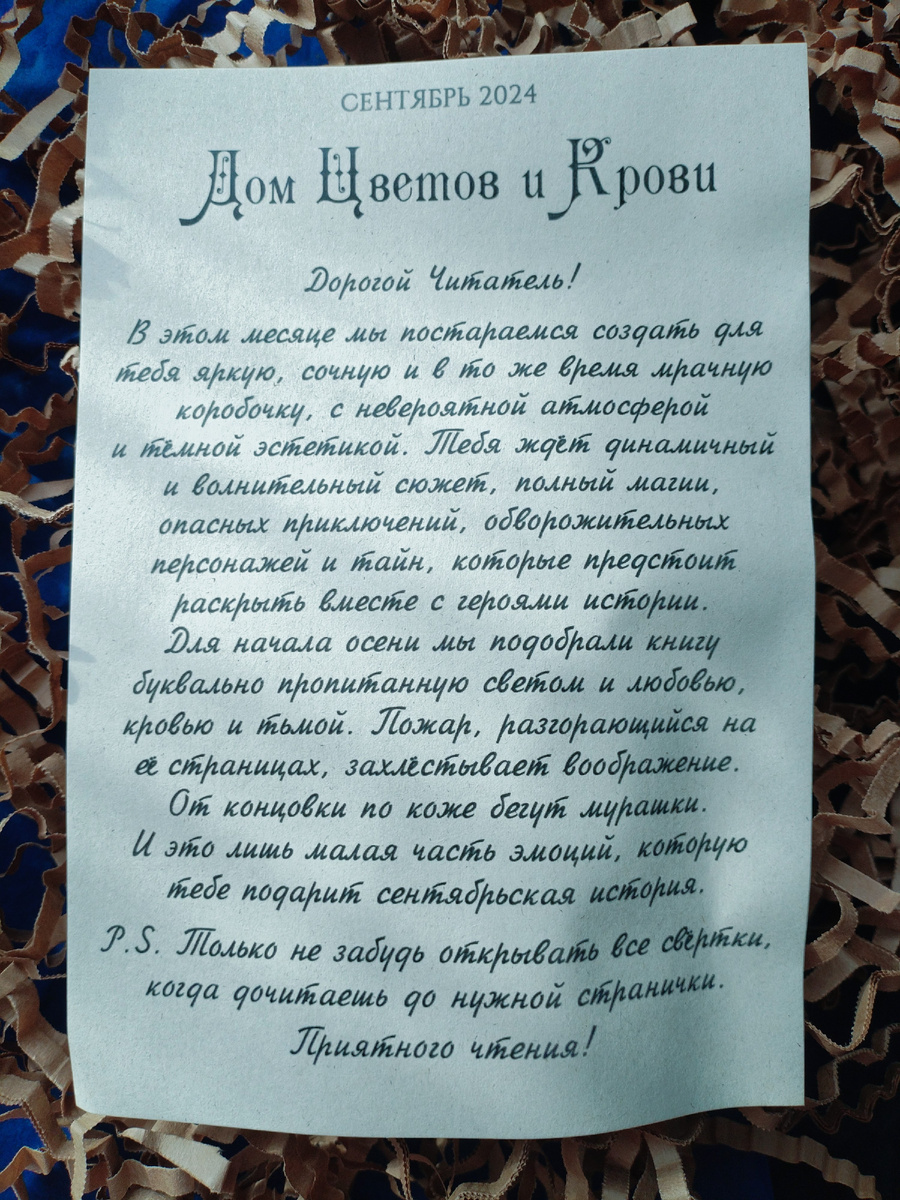 СЕНТЯБРЬ 2024
Дом Цветов и Крови
Дорогой Читатель!
В этом месяце мы постараемся создать для
тебя яркую, сочную и в то же время мрачную
коробочку, с невероятной атмосферой
и тёмной эстетикой. Тебя ждёт динамичный
и волнительный сюжет, полный магии,
опасных приключений, обворожительных
персонажей и тайн, которые предстоит
раскрыть вместе с героями истории.
Для начала осени мы подобрали книгу
буквально пропитанную светом и любовью,
кровью и тьмой. Пожар, разгорающийся на
её страницах, захлёстывает воображение.
От концовки по коже бегут мурашки.
И это лишь малая часть эмоций, которую
тебе подарит сентябрьская история.
P.S. Только не забудь открывать все свёртки,
когда дочитаешь до нужной странички.
Приятного чтения!